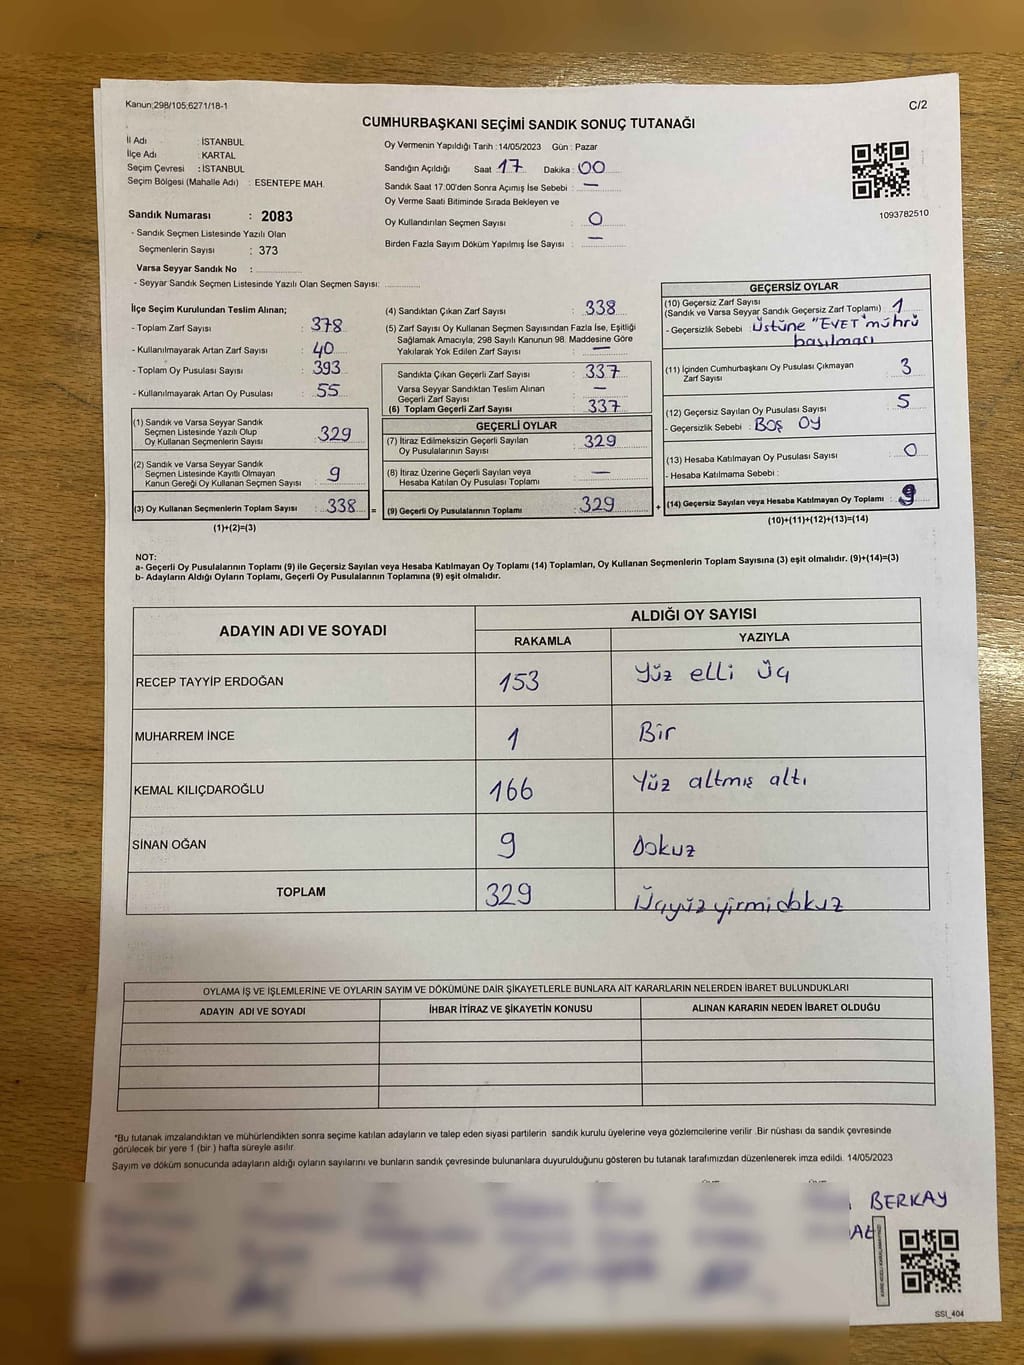 Kanun;298/105;6271/18-1
C/2
CUMHURBAŞKANI SEÇİMİ SANDIK SONUÇ TUTANAĞI
İl Adı : İSTANBUL
İlçe Adı : KARTAL
Seçim Çevresi : İSTANBUL
Seçim Bölgesi (Mahalle Adı) : ESENTEPE MAH.
Sandık Numarası : 2083
- Sandık Seçmen Listesinde Yazılı Olan
Seçmenlerin Sayısı : 373
Varsa Seyyar Sandık No :
- Seyyar Sandık Seçmen Listesinde Yazılı Olan Seçmen Sayısı:
Oy Vermenin Yapıldığı Tarih :14/05/2023 Gün : Pazar
Sandığın Açıldığı Saat : 17 Dakika : 00
Sandık Saat 17:00'den Sonra Açımış İse Sebebi : —
Oy Verme Saati Bitiminde Sırada Bekleyen ve
Oy Kullandırılan Seçmen Sayısı : 0
Birden Fazla Sayım Döküm Yapılmış İse Sayısı : —
1093782510
İlçe Seçim Kurulundan Teslim Alınan;
- Toplam Zarf Sayısı : 378
- Kullanılmayarak Artan Zarf Sayısı : 40
- Toplam Oy Pusulası Sayısı : 393
- Kullanılmayarak Artan Oy Pusulası : 55
(1) Sandık ve Varsa Seyyar Sandık
Seçmen Listesinde Yazılı Olup
Oy Kullanan Seçmenlerin Sayısı : 329
(2) Sandık ve Varsa Seyyar Sandık
Seçmen Listesinde Kayıtlı Olmayan
Kanun Gereği Oy Kullanan Seçmen Sayısı : 9
(3) Oy Kullanan Seçmenlerin Toplam Sayısı : 338 =
(1)+(2)=(3)
(4) Sandıktan Çıkan Zarf Sayısı : 338
(5) Zarf Sayısı Oy Kullanan Seçmen Sayısından Fazla İse, Eşitliği
Sağlamak Amacıyla, 298 Sayılı Kanunun 98. Maddesine Göre
Yakılarak Yok Edilen Zarf Sayısı : —
Sandıkta Çıkan Geçerli Zarf Sayısı : 337
Varsa Seyyar Sandıktan Teslim Alınan
Geçerli Zarf Sayısı : —
(6) Toplam Geçerli Zarf Sayısı : 337
GEÇERLİ OYLAR
(7) İtiraz Edilmeksizin Geçerli Sayılan
Oy Pusulalarının Sayısı : 329
(8) İtiraz Üzerine Geçerli Sayılan veya
Hesaba Katılan Oy Pusulası Toplamı : —
(9) Geçerli Oy Pusulalarının Toplamı : 329 +
GEÇERSİZ OYLAR
(10) Geçersiz Zarf Sayısı
(Sandık ve Varsa Seyyar Sandık Geçersiz Zarf Toplamı) : 1
- Geçersizlik Sebebi : Üstüne "EVET" mührü
basılması
(11) İçinden Cumhurbaşkanı Oy Pusulası Çıkmayan
Zarf Sayısı : 3
(12) Geçersiz Sayılan Oy Pusulası Sayısı : 5
- Geçersizlik Sebebi : BOŞ OY
(13) Hesaba Katılmayan Oy Pusulası Sayısı : 0
- Hesaba Katılmama Sebebi :
(14) Geçersiz Sayılan veya Hesaba Katılmayan Oy Toplamı : 9
(10)+(11)+(12)+(13)=(14)
NOT:
a- Geçerli Oy Pusulalarının Toplamı (9) ile Geçersiz Sayılan veya Hesaba Katılmayan Oy Toplamı (14) Toplamları, Oy Kullanan Seçmenlerin Toplam Sayısına (3) eşit olmalıdır. (9)+(14)=(3)
b- Adayların Aldığı Oyların Toplamı, Geçerli Oy Pusulalarının Toplamına (9) eşit olmalıdır.
ADAYIN ADI VE SOYADI ALDIĞI OY SAYISI
RAKAMLA YAZIYLA
RECEP TAYYİP ERDOĞAN 153 Yüz elli Üç
MUHARREM İNCE 1 Bir
KEMAL KILIÇDAROĞLU 166 Yüz altmış altı
SİNAN OĞAN 9 Dokuz
TOPLAM 329 Üçyüz yirmi dokuz
OYLAMA İŞ VE İŞLEMLERİNE VE OYLARIN SAYIM VE DÖKÜMÜNE DAİR ŞİKAYETLERLE BUNLARA AİT KARARLARIN NELERDEN İBARET BULUNDUKLARI
ADAYIN ADI VE SOYADI İHBAR İTİRAZ VE ŞİKAYETİN KONUSU ALINAN KARARIN NEDEN İBARET OLDUĞU
*Bu tutanak imzalandıktan ve mühürlendikten sonra seçime katılan adayların ve talep eden siyasi partilerin sandık kurulu üyelerine veya gözlemcilerine verilir .Bir nüshası da sandık çevresinde
görülecek bir yere 1 (bir ) hafta süreyle asılır.
Sayım ve döküm sonucunda adayların aldığı oyların sayılarını ve bunların sandık çevresinde bulunanlara duyurulduğunu gösteren bu tutanak tarafımızdan düzenlenerek imza edildi. 14/05/2023
BERKAY
SSI_404